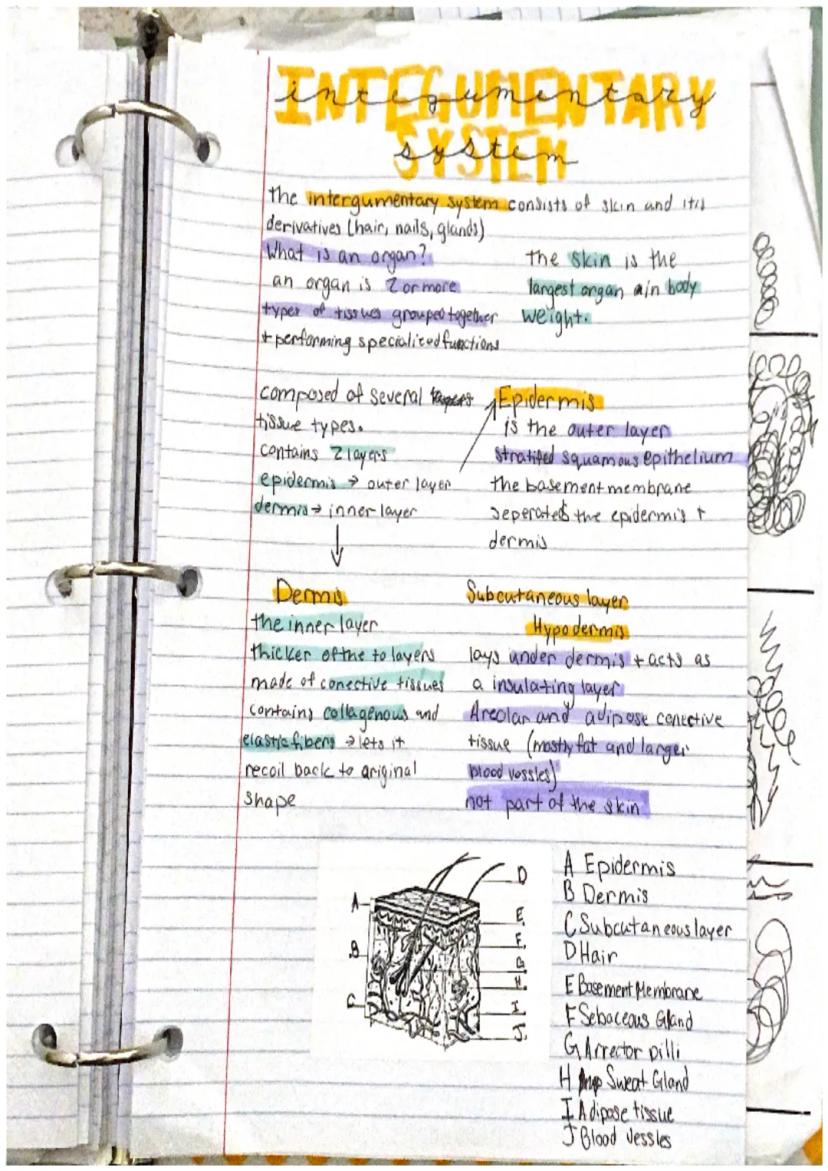 INTEGUMENTARY
integumentary
SYSTEM
system
the intergumentary system consists of skin and it's
derivatives (hair, nails, glands)
What is an organ?
an organ is 2 or more
types of tissues grouped together
+ performing specialized functions
the skin is the
largest organ in body
weight.
composed of several
tissue types.
contains 2 layers
epidermis → outer layer
dermis → inner layer
Epidermis
is the outer layer
stratifed squamous epithelium
the basement membrane
seperates the epidermis +
dermis
Dermis
the inner layer
thicker of the to layers
made of conective tissues
contains collagenous and
elastic fibers → lets it
recoil back to original
shape
Subcutaneous layer
Hypodermis
lays under dermis + acts as
a insulating layer
Areolar and adipose conective
tissue (mostly fat and larger
blood vessles)
not part of the skin
A
B
C
D
E
F
G
H
I
J
A Epidermis
B Dermis
C Subcutaneous layer
D Hair
E Basement Membrane
F Sebaceous Gland
G Arrector pilli
H Sweat Gland
I Adipose tissue
J Blood vessles